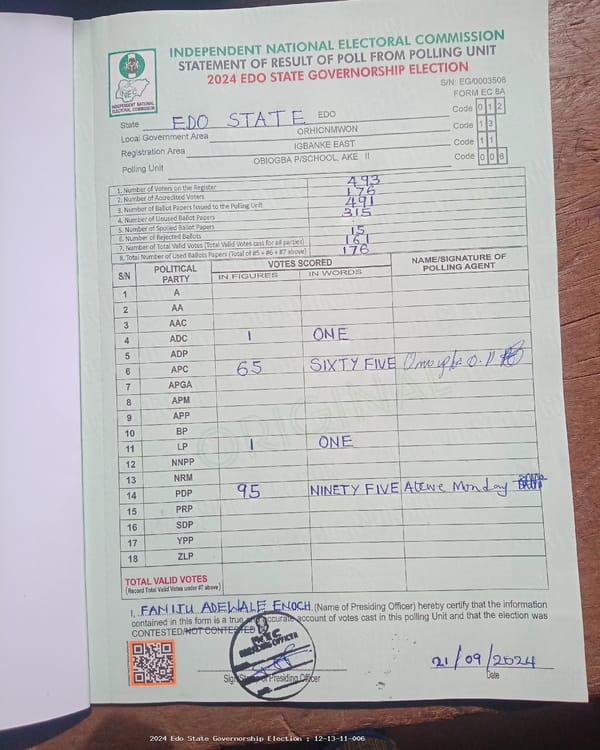 INDEPENDENT NATIONAL ELECTORAL COMMISSION
STATEMENT OF RESULT OF POLL FROM POLLING UNIT
2024 EDO STATE GOVERNORSHIP ELECTION
INEC
INDEPENDENT NATIONAL ELECTORAL COMMISSION
S/N: EG/0003506
FORM EC 8A
State EDO STATE EDO Code 0 1 2
Local Government Area ORHIONMWON Code 1 3
Registration Area IGBANKE EAST Code 1 1
Polling Unit OBIOGBA P/SCHOOL, AKE II Code 0 0 6
1. Number of Voters on the Register 493
2. Number of Accredited Voters 176
3. Number of Ballot Papers Issued to the Polling Unit 491
4. Number of Unused Ballot Papers 315
5. Number of Spoiled Ballot Papers
6. Number of Rejected Ballots 15
7. Number of Total Valid Votes (Total Valid Votes cast for all parties) 161
8. Total Number of Used Ballots Papers (Total of #5 + #6 + #7 above) 176
S/N POLITICAL PARTY VOTES SCORED NAME/SIGNATURE OF POLLING AGENT
IN FIGURES IN WORDS
1 A
2 AA
3 AAC
4 ADC 1 ONE
5 ADP
6 APC 65 SIXTY FIVE
7 APGA
8 APM
9 APP
10 BP
11 LP 1 ONE
12 NNPP
13 NRM
14 PDP 95 NINETY FIVE Atewe Monday
15 PRP
16 SDP
17 YPP
18 ZLP
ORIGINAL
TOTAL VALID VOTES
(Record Total Valid Votes under #7 above)
I, FANIJU ADEWALE ENOCH (Name of Presiding Officer) hereby certify that the information
contained in this form is a true and accurate account of votes cast in this polling Unit and that the election was
CONTESTED/NOT CONTESTED
INEC
PRESIDING OFFICER
21/09/2024
Signature of Presiding Officer Date
2024 Edo State Governorship Election : 12-13-11-006